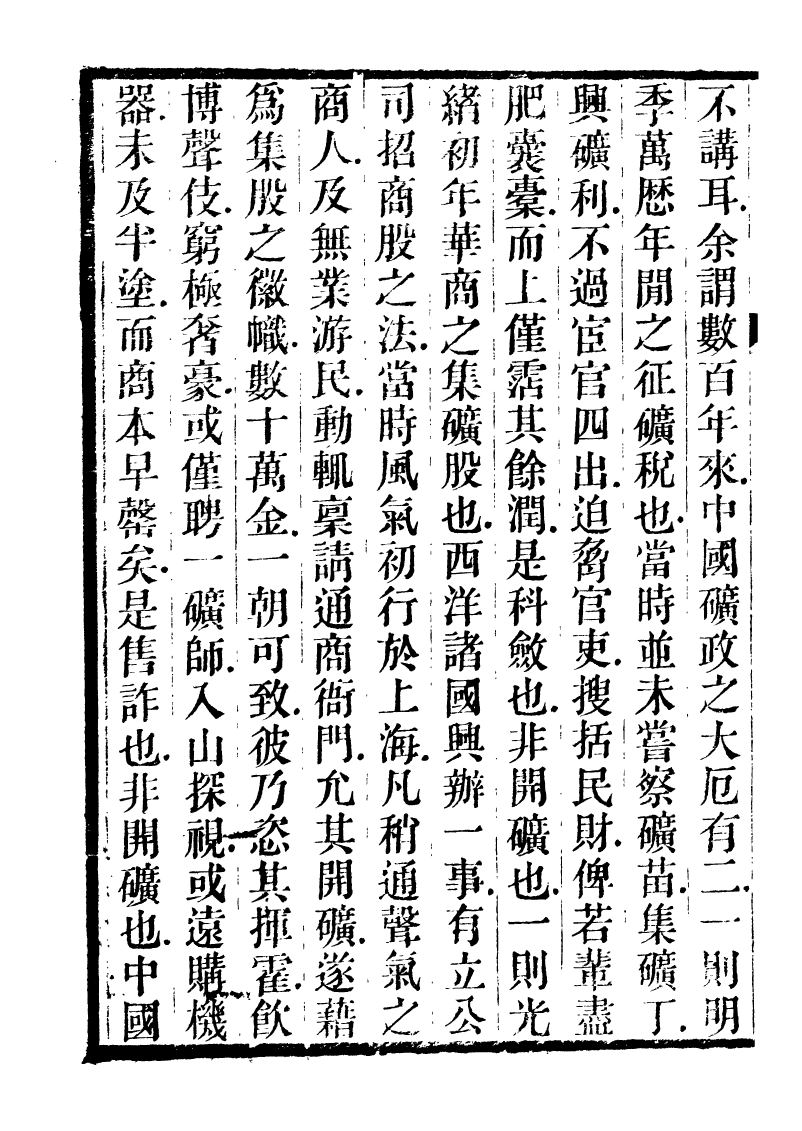 不講耳.余謂數百年來.中國礦政之大厄有二.一則明
季萬歷年閒之征礦稅也.當時並未嘗察礦苗.集礦丁.
興礦利.不過宦官四出.迫脅官吏.搜括民財.俾若輩盡
肥囊橐.而上僅霑其餘潤.是科斂也.非開礦也.一則光
緒初年華商之集礦股也.西洋諸國興辦一事.有立公
司招商股之法.當時風氣初行於上海.凡稍通聲氣之
商人.及無業游民.動輒稟請通商衙門.允其開礦.遂藉
爲集股之徽幟.數十萬金.一朝可致.彼乃恣其揮霍.飲
博聲伎.窮極奢豪.或僅聘一礦師.入山探視.或遠購機
器.未及半塗.而商本早罄矣.是售詐也.非開礦也.中國